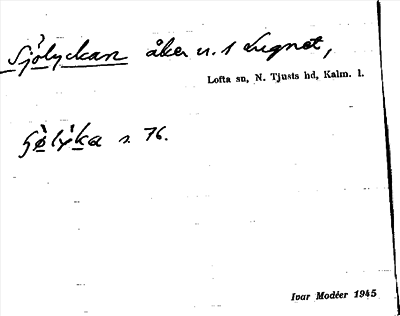 Sjölyckan åker n. 1 Lugnet,
Lofta sn, N. Tjusts hd, Kalm. l.
s. 76.
Ivar Modéer 1945